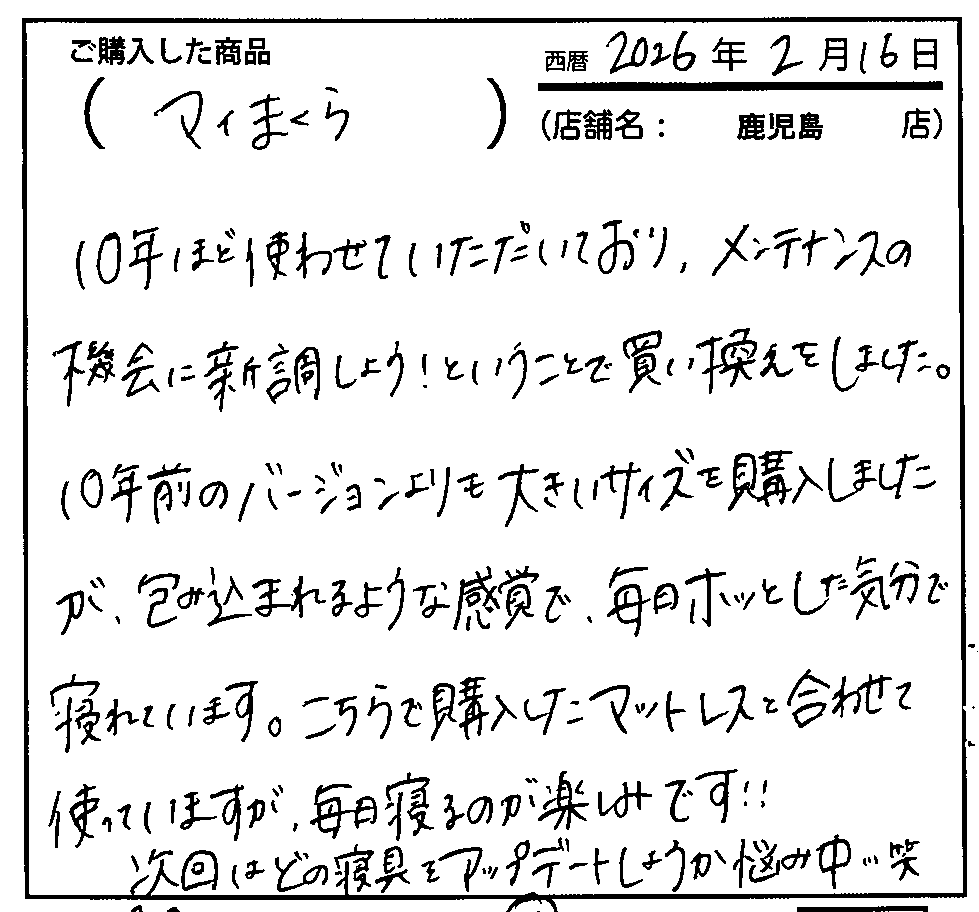 ご購入した商品
(マイまくら)
西暦 2026年2月16日
(店舗名: 鹿児島 店)
10年ほど使わせていただいており、メンテナンスの
機会に新調しよう!ということで買い換えをしました。
10年前のバージョンよりも大きいサイズを購入しました
が、包み込まれるような感覚で、毎日ホッとした気分で
寝れています。こちらで購入したマットレスと合わせて
使っていますが、毎日寝るのが楽しみです!!
次回はどの寝具をアップデートしようか悩み中…笑